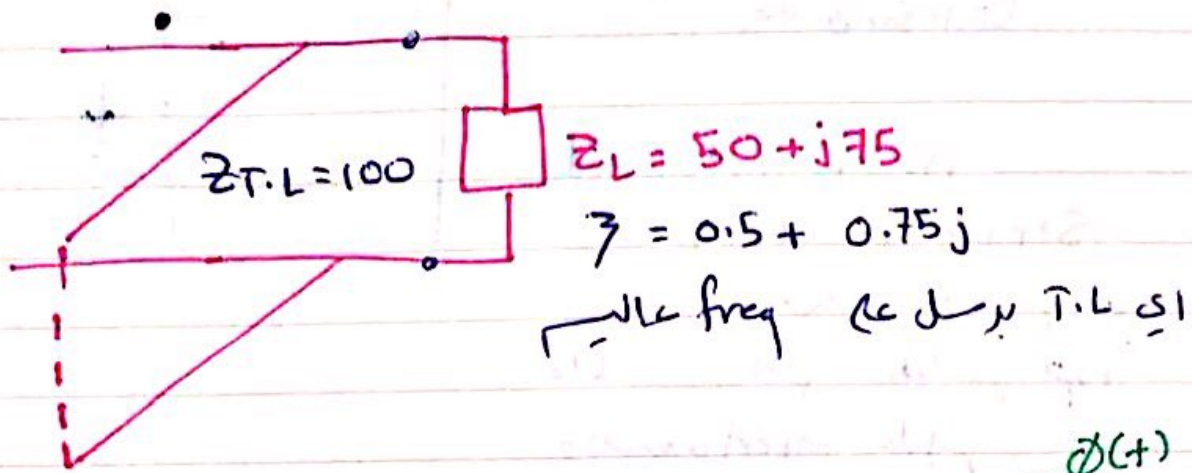 Z_T.L = 100
Z_L = 50 + j75
z = 0.5 + 0.75j
اي T.L برسل على freq عاليه